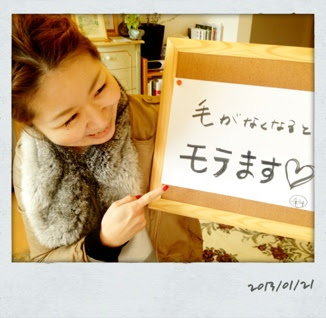 毛がなくなると
モラます♡
2013/01/21